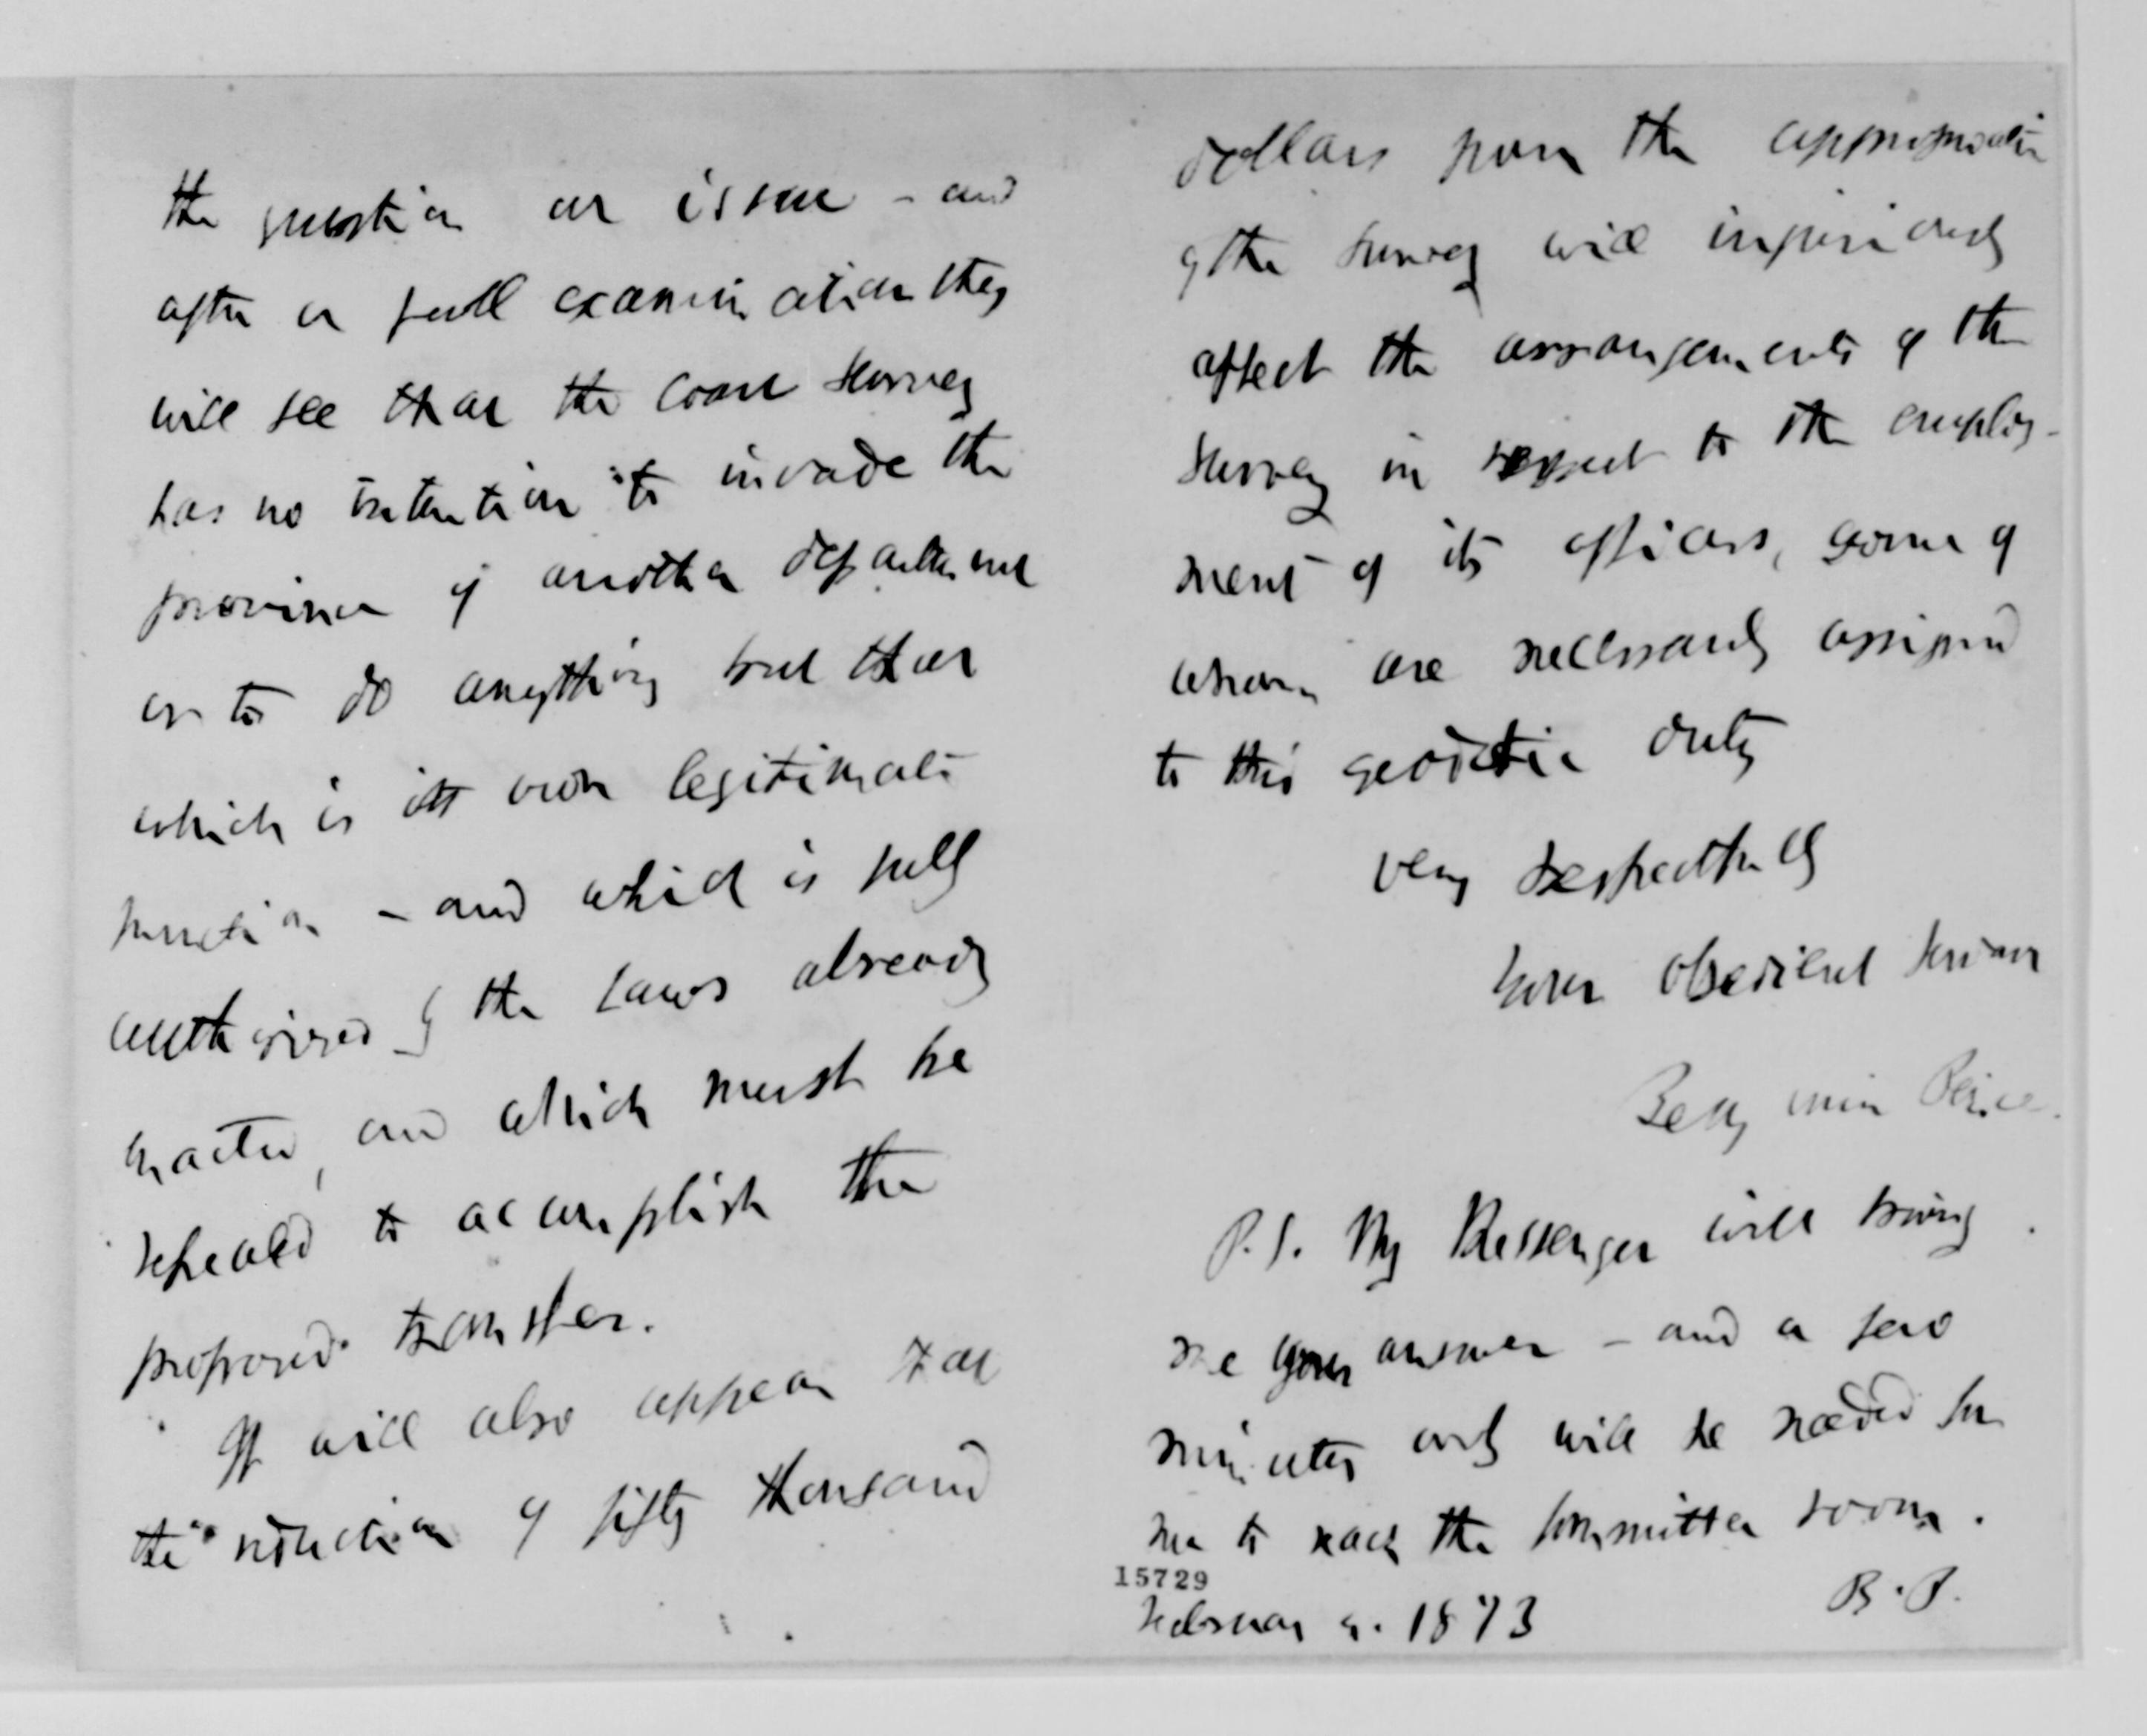 the question at issue - and
after a full examination they
will see that the Coast Survey
has no intention to invade the
province of another department
or to do anything but that
which is its own legitimate
function - and which is fully
authorized by the laws already
enacted, and which must be
repealed to accomplish the
proposed transfer.
It will also appear that
the reduction of fifty thousand
dollars from the appropriation
of the Survey will injuriously
affect the arrangements of the
Survey in respect to the employ-
ment of its officers, some of
whom are necessarily assigned
to this geodetic duty
very respectfully
Your obedient servant
Benjamin Peirce.
P.S. My Messenger will bring
me your answer - and a few
minutes only will be needed for
me to reach the Committee room.
15729
B.P.
February 1873